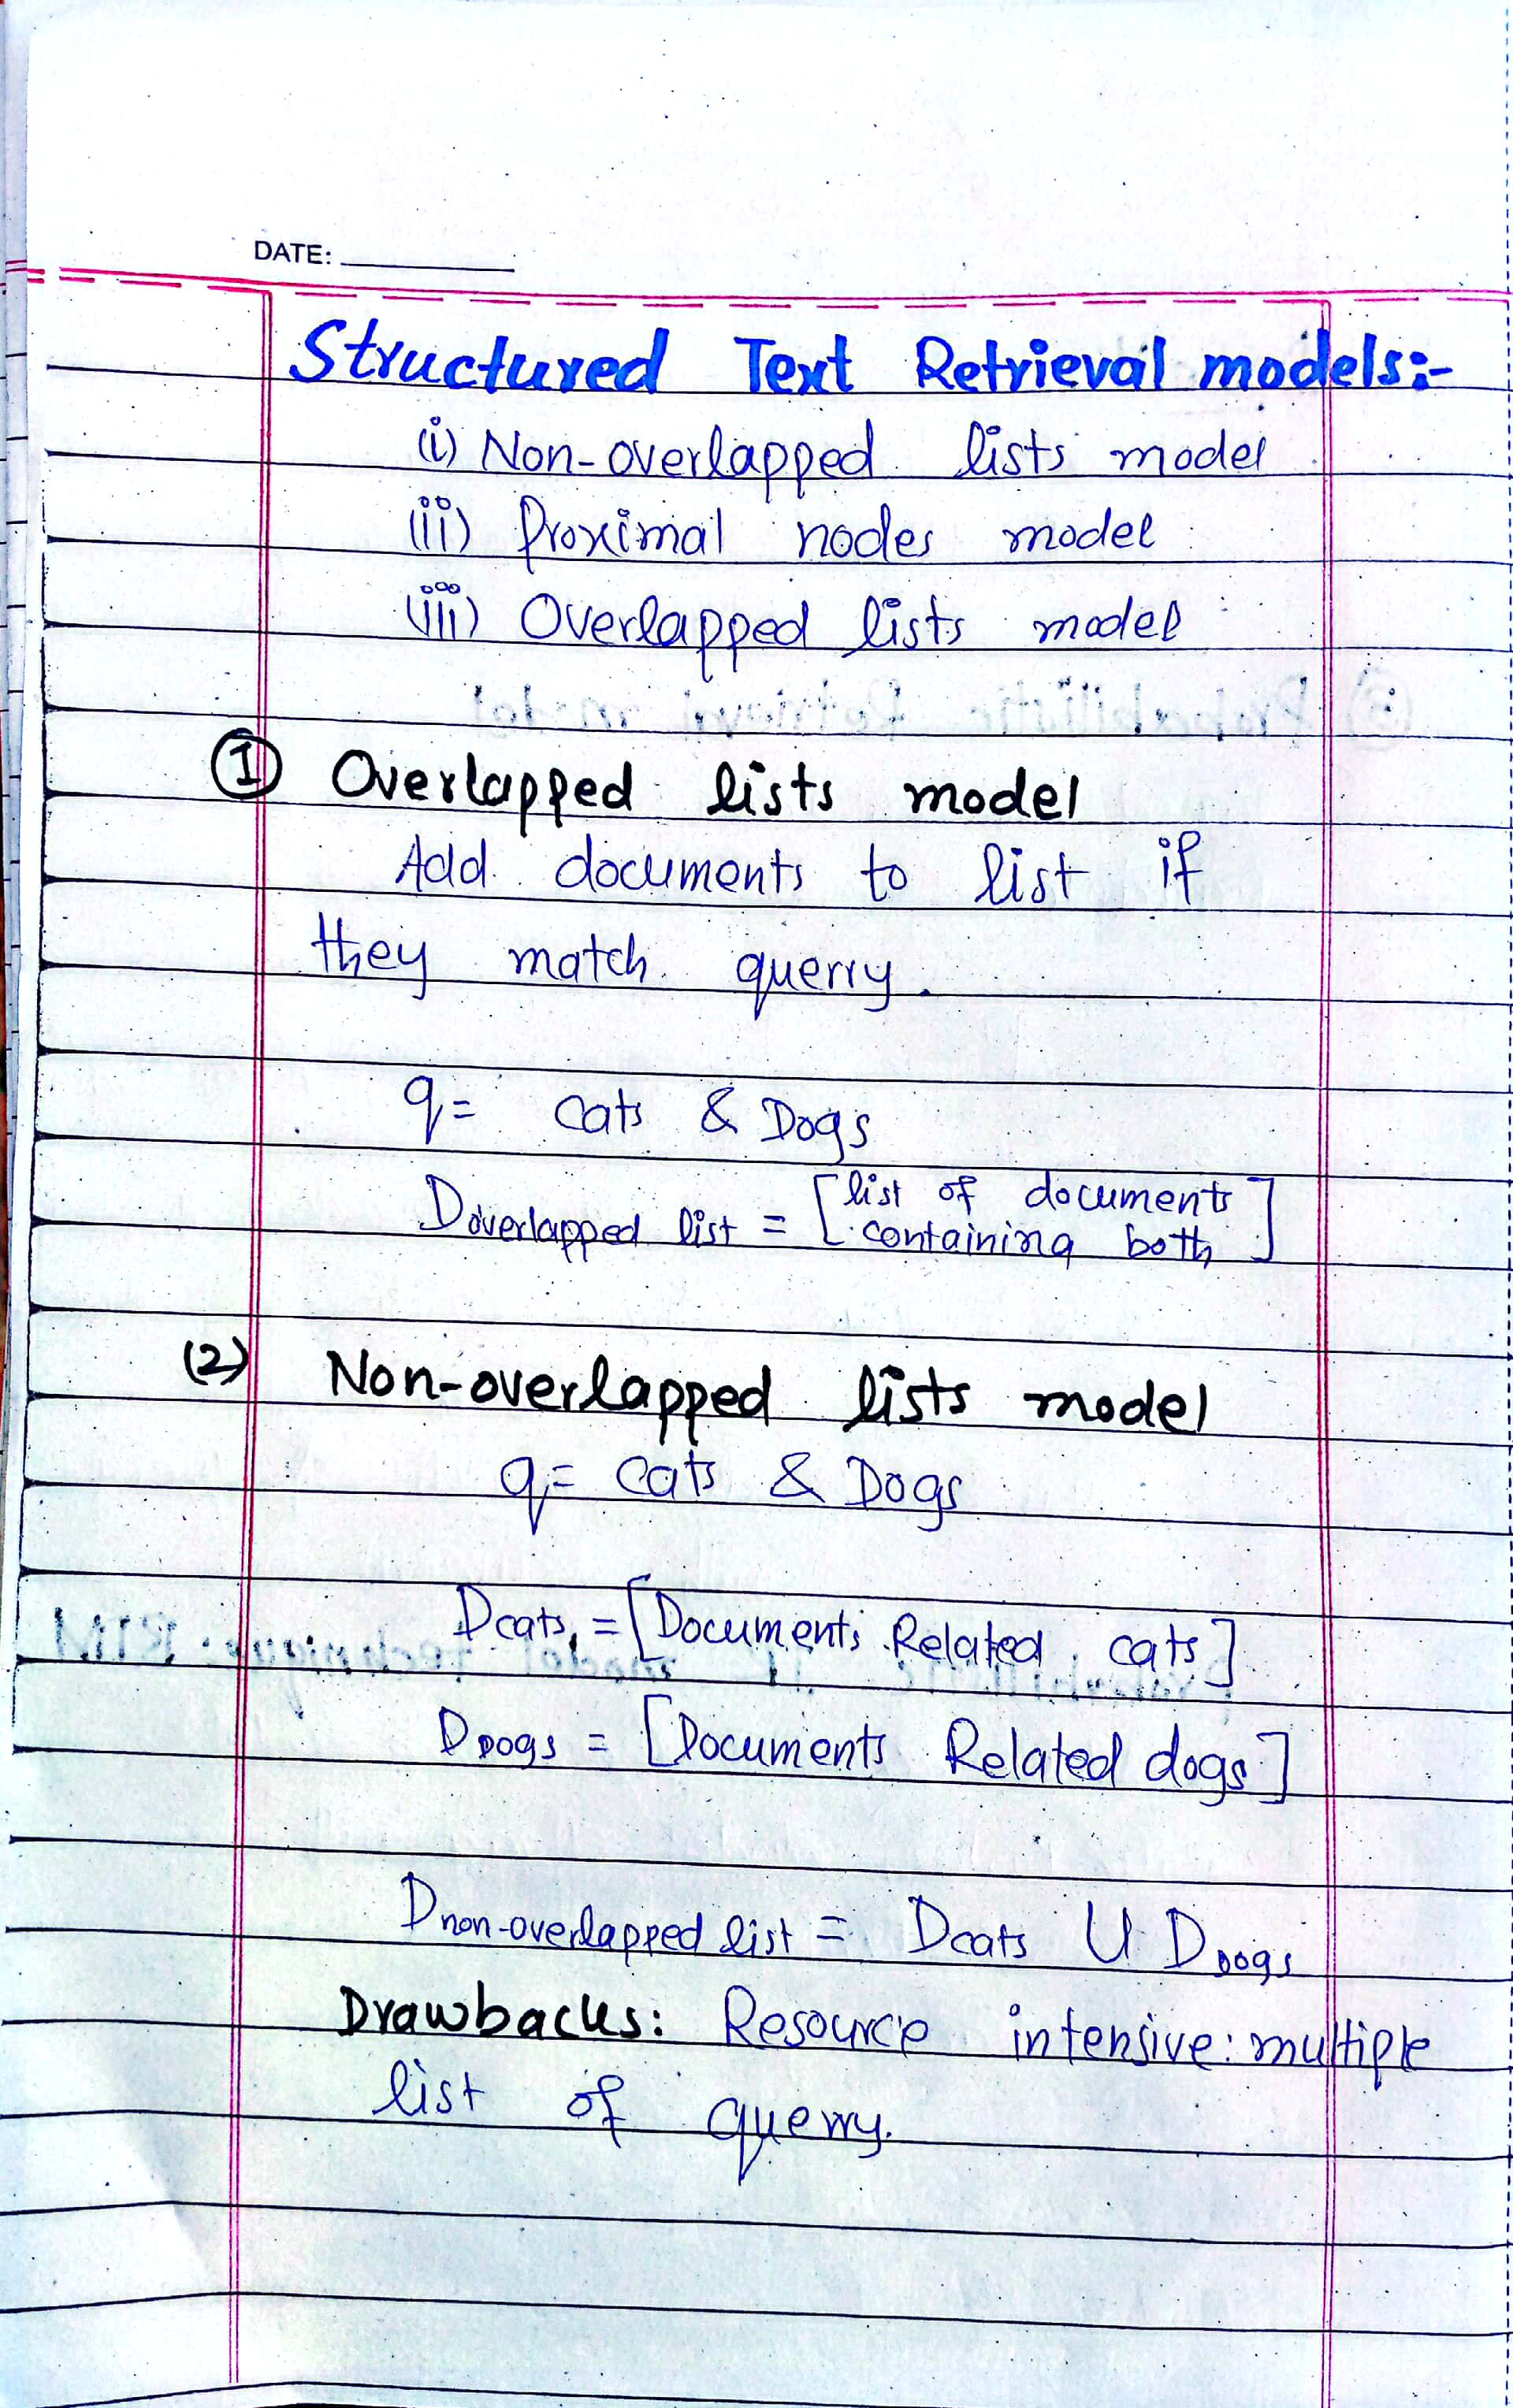 DATE:
Structured Text Retrieval models:-
(i) Non-overlapped lists model
(ii) Proximal nodes model
(iii) Overlapped lists model
① Overlapped lists model
Add documents to list if
they match querry.
q = cats & Dogs
D overlapped list = [list of documents
containing both]
(2) Non-overlapped lists model
q = cats & Dogs
Dcats, = [Documents Related cats]
DDogs = [Documents Related dogs]
Dnon-overlapped list = Dcats U DDogs
Drawbacks: Resource intensive: multiple
list of querry.